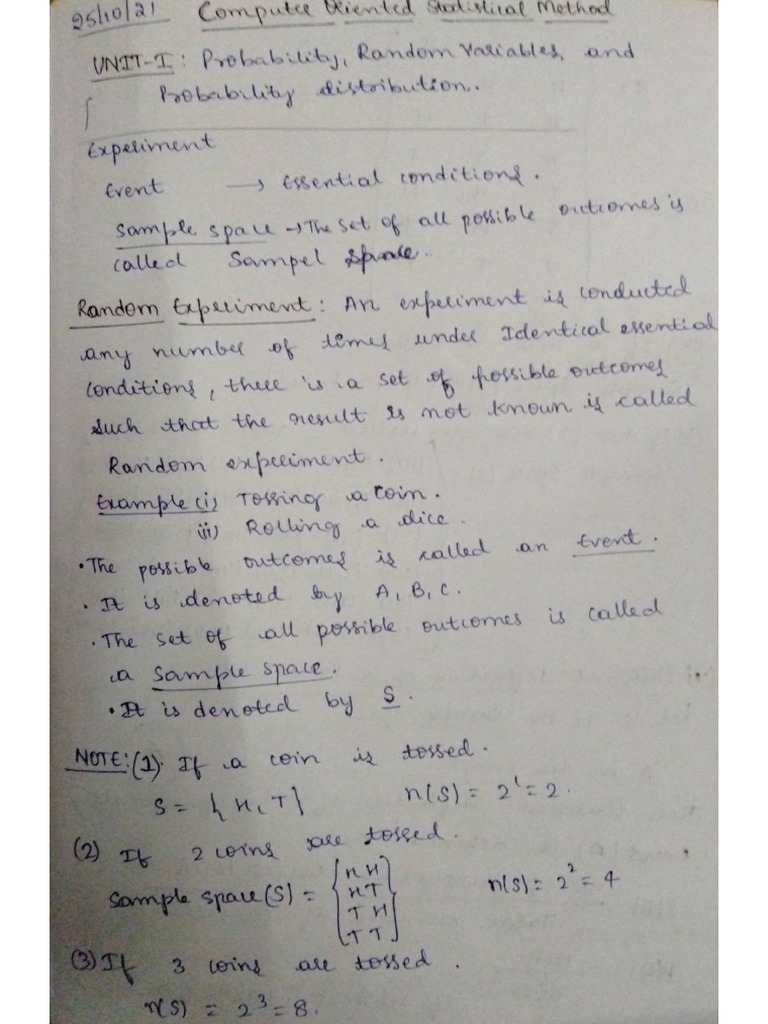 25/10/21 Computer Oriented Statistical Method
UNIT-I: Probability, Random Variables, and
Probability distribution.
Experiment
Event → Essential conditions.
Sample space → The set of all possible outcomes is
called Sampel Space.
Random Experiment: An experiment is conducted
any number of times under Identical essential
conditions, there is a set of possible outcomes
such that the result is not known is called
Random experiment.
Example (i) Tossing a coin.
ii) Rolling a dice.
• The possible outcomes is called an Event.
• It is denoted by A, B, C.
• The set of all possible outcomes is called
a sample space.
• It is denoted by S.
NOTE: (1). If a coin is tossed.
S = { H, T} n(S) = 2¹ = 2.
(2) If 2 coins are tossed.
Sample space (S) = { H H
H T
T H
T T } n(S) = 2² = 4
(3) If 3 coins are tossed.
n(S) = 2³ = 8.